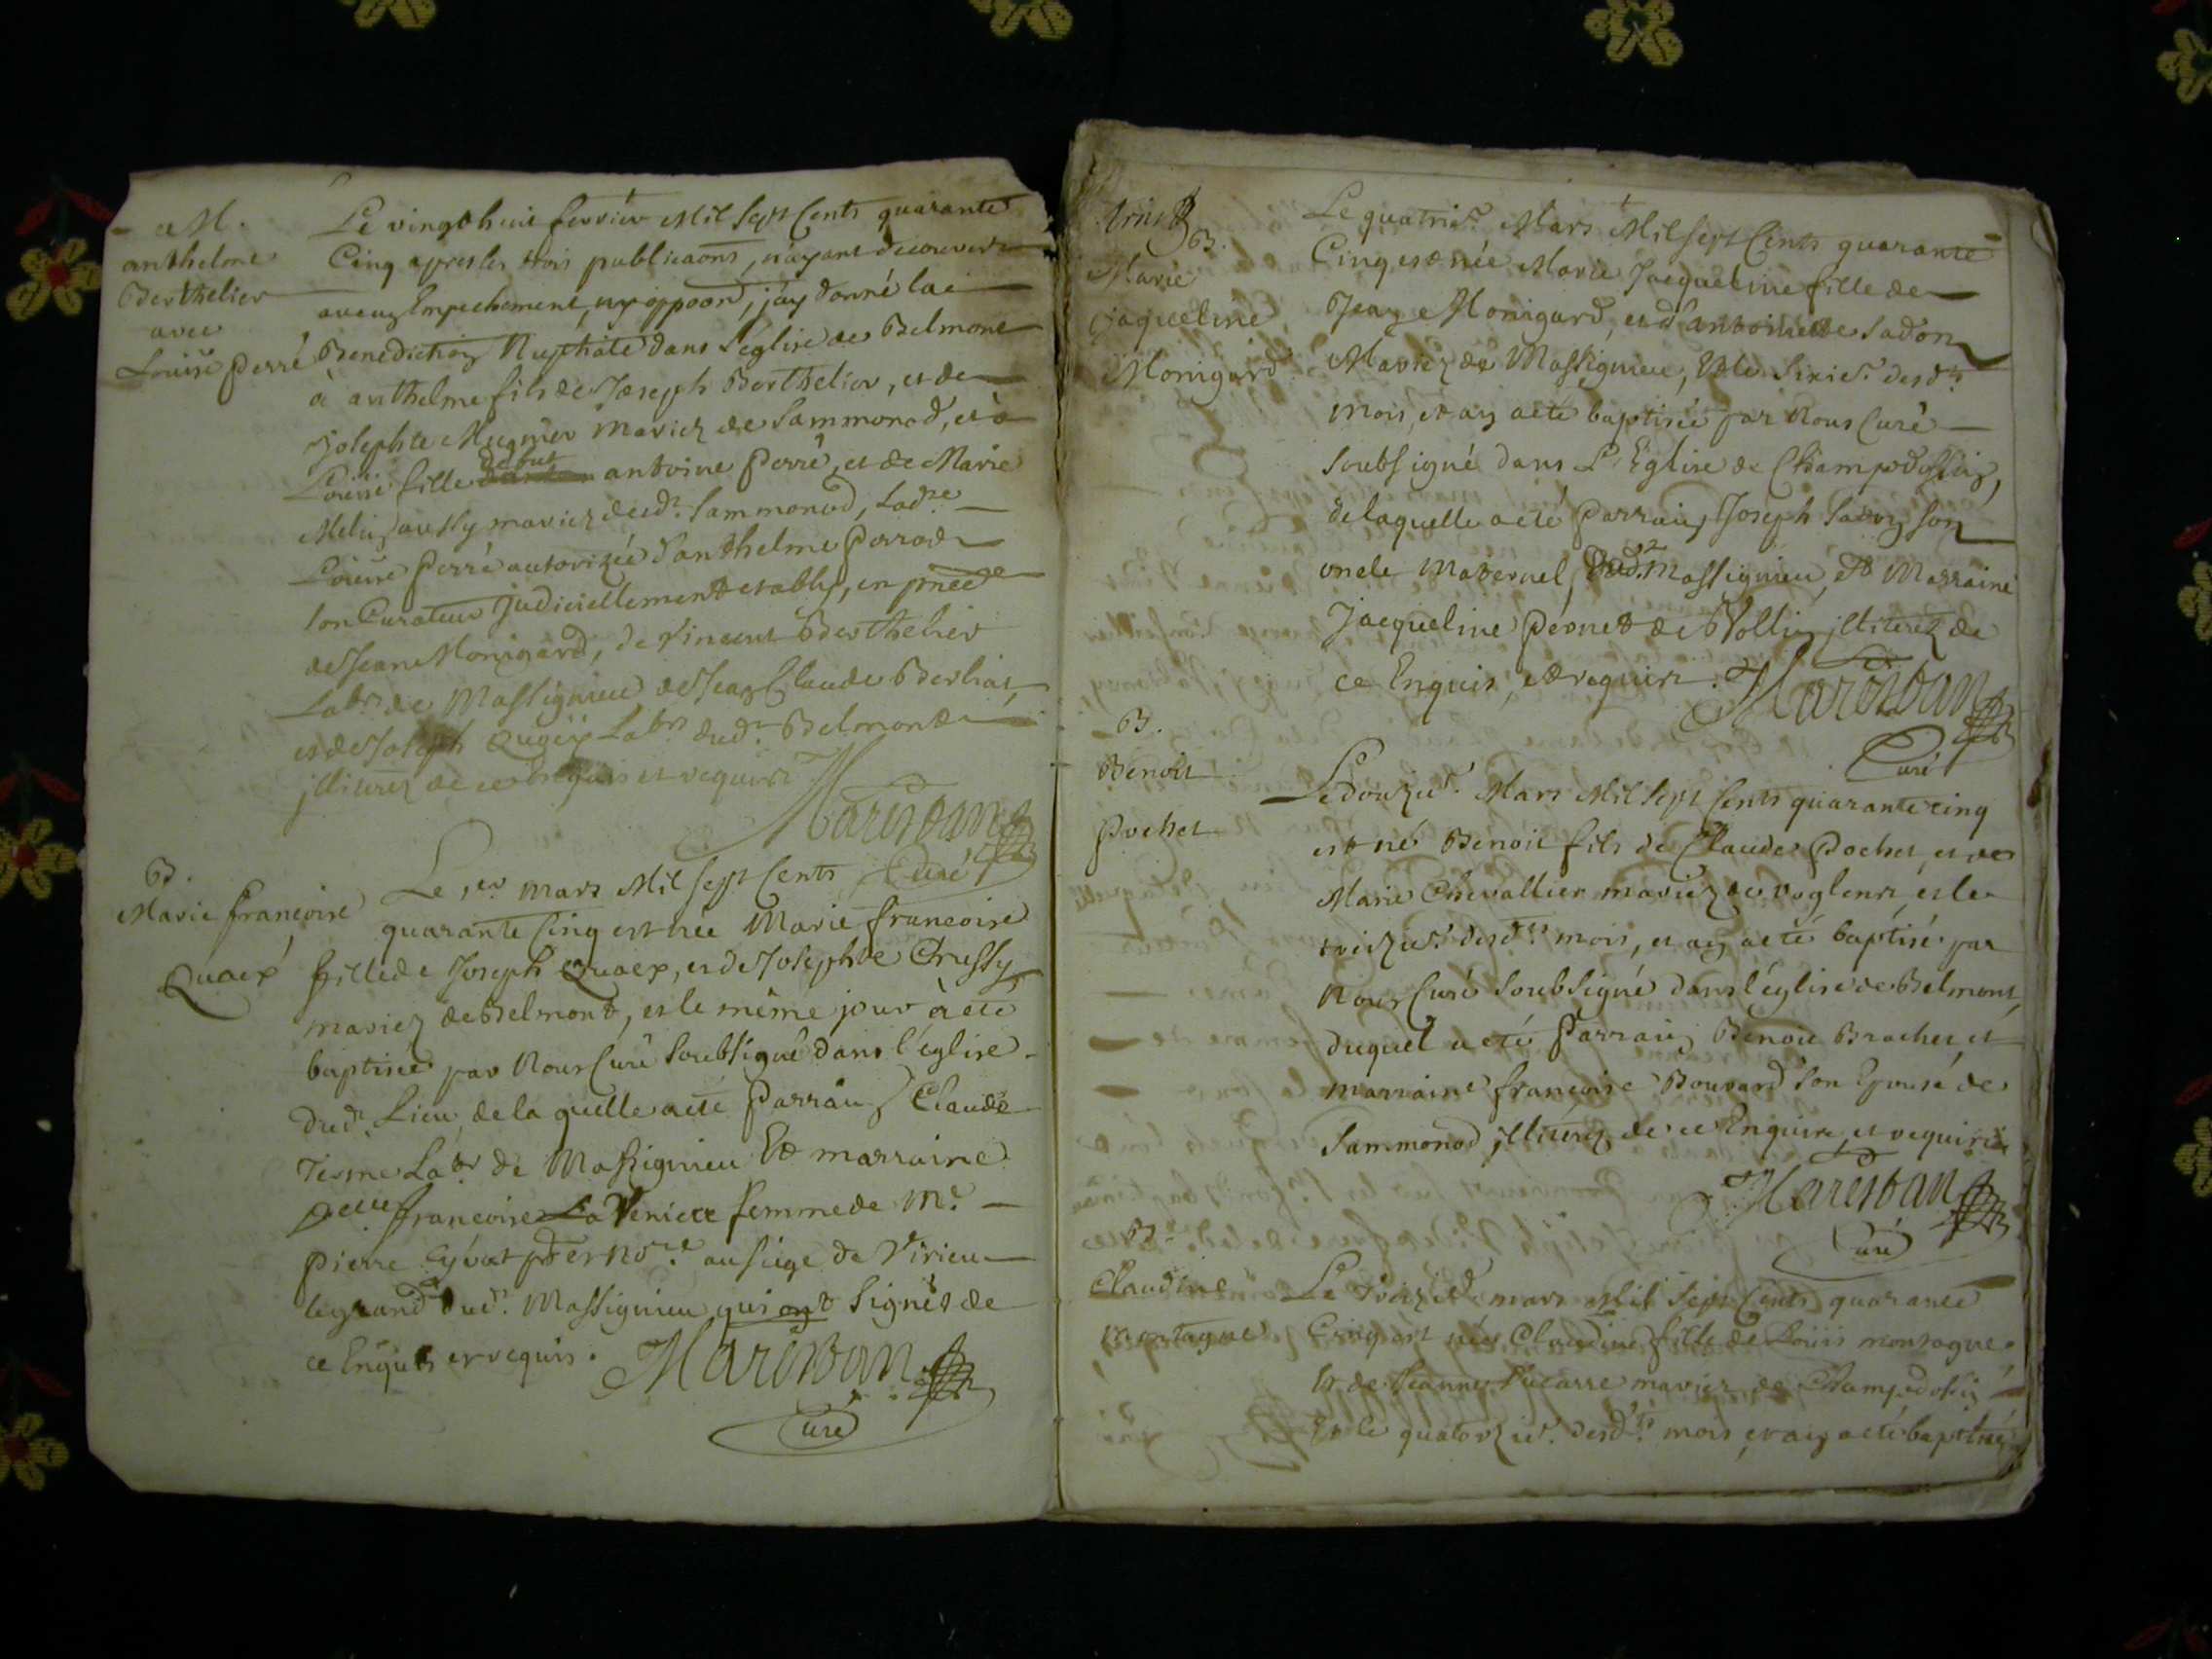 M.
anthelme
Berthelier
avec
Louïse perré
Le vingt huit fevrier Mil Sept Cents quarante
Cinq apres les trois publicaons, n'ayant decouvert
aucuz Empechement, ny oppoon, j'ay donné la
Benedictioz Nuptiale dans l'eglise de Belmont
à anthelme fils de Joseph Berthelier, et de
Josephte Mugnier mariez de Sammonod, et à
Loüise fille defut antoine perré, et de Marie
Meliz aussy mariez dud.t Sammonod, Lad.te
Loüise perré autorizée d'anthelme perrod
son Curateur Judiciellement etably, en pñce
de Jean Monigard, de Vincent Berthelier
Lab.rs de Massignieu de Jeaz Claude Berliat,
et de Joseph Qugey Lab.rs dud.t Belmont
jlliterez de ce Enquis et requis
Marestan
Curé
B.
Marie françoise
Quaex
Le 1.er mars Mil Sept Cents
quarante Cinq est née Marie françoise
fille de Joseph Quaex, et de Josephte Crussy
mariez de Belmont, et le même jour a eté
baptisée par Nous Curé Soubsigné dans l'église
dud.t Lieu, de laquelle a eté Parraiz Claude
Tesme Lab.r de Massignieu Et marraine
françoise La Veniere femme de M.e
pierre Cyvat et No.re au siege de Virieu
le grand dud.t Massignieu qui ont Signés de
ce Enquis et requis. Marestan
Curé
B.
Marie
jaqueline
Monigard
Le quatrie.e Mars Mil Sept Cents quarante
Cinq est née Marie Jacqueline fille de
Jeaz Monigard, et d'antoinette Sadon
Mariez de Massignieu, Et le Sixie.e desd.ts
mois, et az a eté baptisée par Nous Curé
Soubsigné dans L'Eglise de Champdossiz,
de laquelle a eté Parraiz Joseph Sadoz son
oncle Maternel, dud.t Massignieu, et Marraine
Jacqueline Pernet de Rolliz jlliterez de
ce Enquis, et requis. Marestan
Curé
B.
Benoit
pochet
Le douzie.e Mars Mil Sept Cents quarante cinq
est né Benoit fils de Claude Pochet, et de
Marie Chevallier mariez de voglens, et le
treizie.e desd.ts mois, et az a eté baptisé par
Nous Curé Soubsigné dans l'église de Belmont,
duquel a eté Parraiz Benoit Brachet et
marraine françoise Bouvard son Epouse de
Sammonod jlliterez de ce Enquis et requis
Marestan
Curé
B.
Claudine
montagne
Le treizie.e mars Mil Sept Cents quarante
Cinq est née Claudine fille de Loüis montagne
Et de Jeanne mariez de Champdossiz
Et le quatorzie.e desd.ts mois et az a eté baptisée